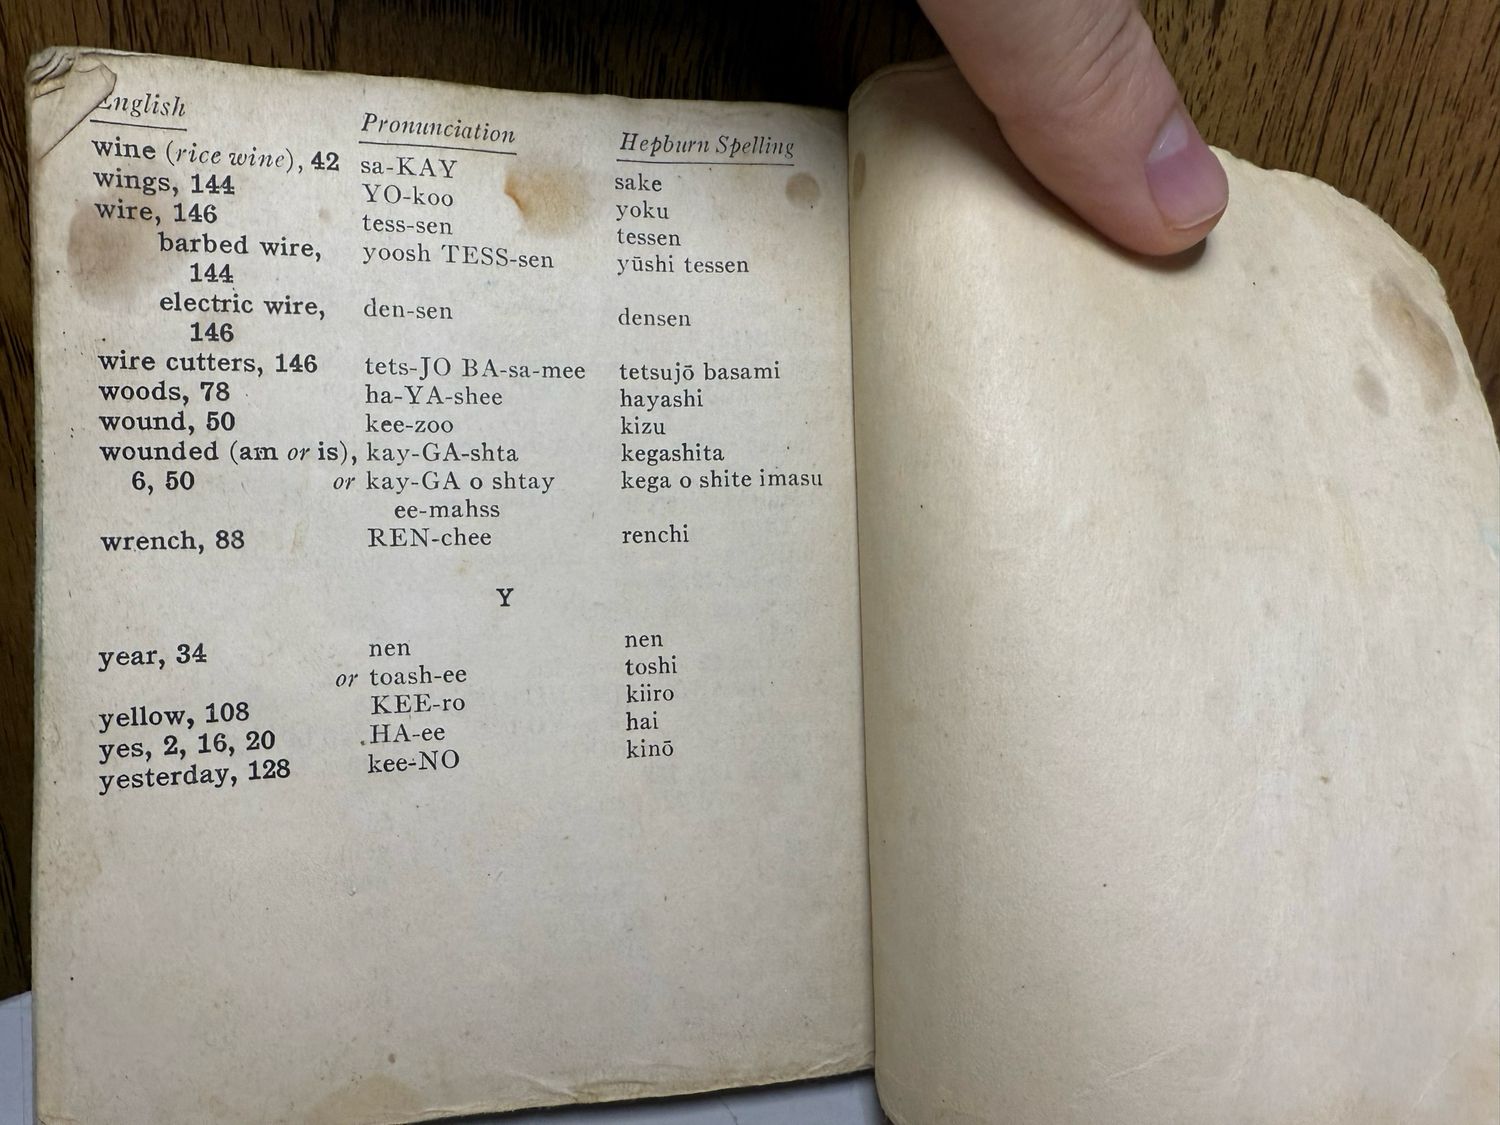 English Pronunciation Hepburn Spelling
wine (rice wine), 42 sa-KAY sake
wings, 144 YO-koo yoku
wire, 146 tess-sen tessen
barbed wire, yoosh TESS-sen yūshi tessen
144
electric wire, den-sen densen
146
wire cutters, 146 tets-JO BA-sa-mee tetsujō basami
woods, 78 ha-YA-shee hayashi
wound, 50 kee-zoo kizu
wounded (am or is), kay-GA-shta kegashita
6, 50 or kay-GA o shtay kega o shite imasu
ee-mahss
wrench, 88 REN-chee renchi
Y
year, 34 nen nen
or toash-ee toshi
yellow, 108 KEE-ro kiiro
yes, 2, 16, 20 HA-ee hai
yesterday, 128 kee-NO kinō